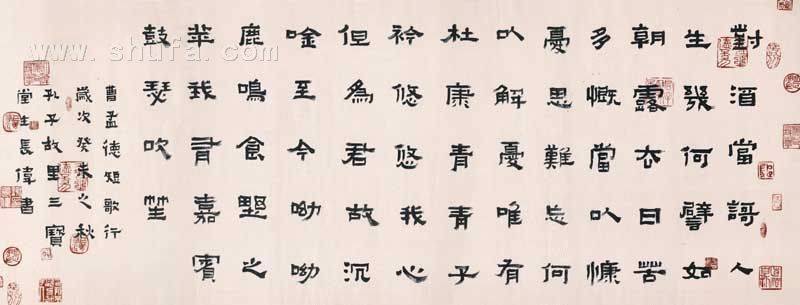 對酒當謌人
生幾何譬如
朝露去日苦
多慨當以慷
憂思難忘何
以解憂唯有
杜康青青子
衿悠悠我心
但為君故沉
唫至今呦呦
鹿鳴食野之
苹我有嘉賓
鼓瑟吹笙
曹孟德短歌行
歲次癸未之秋
孔子故里三寶
堂生長偉書
www.shufa.com